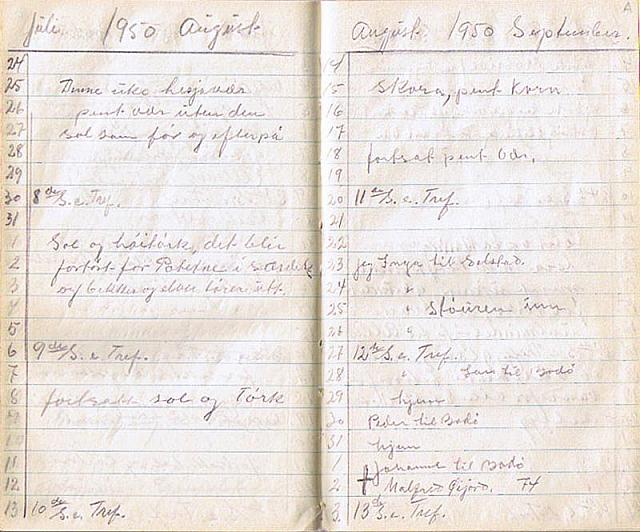 Juli 1950 August
24
25 Denne uke hesjavær
26 pent vær uten den
27 sol som før og efterpå
28
29
30 8de S. e. Tref.
31
1 Sol og høitørk, det blir
2 fortørt for Potetne i
3 og
4
5
6 9de S. e. Tref.
7
8 fortsatt sol og Tørk
9
10
11
12
13 10de S. e. Tref.
August 1950 September.
14
15 Skora, pent Korn
16
17
18 fortsat pent Vær.
19
20 11te S. e. Tref.
21
22
23 jeg Inga til
24 "
25 " Støuren inn
26 "
27 12te S. e. Tref.
28 " til Bodø
29 hjem
30 Peder til Bodø
31 hjem
1 Johanne til Bodø
2 Malfred Gjord. 74
3 13de S. e. Tref.